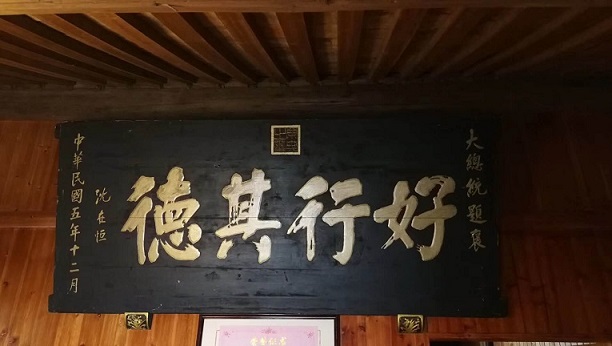 大總統題褒
好行其德
沈在恒
中華民國五年十二月